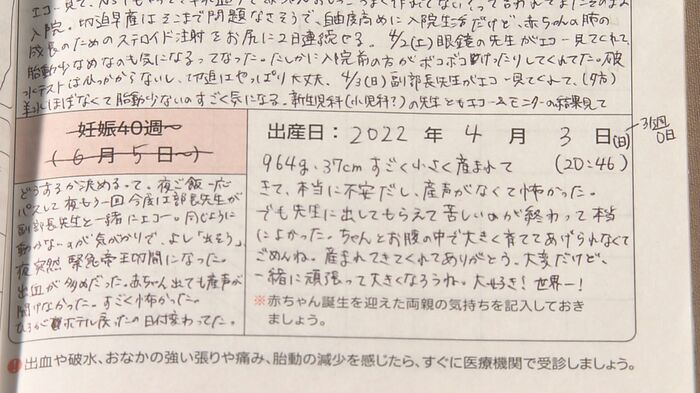 入院。切迫早産はそこまで問題なさそうで、自由度高めに入院生活だけど、赤ちゃんの肺の
成長のためのステロイド注射をお尻に2日連続でする。4/2(土)眼鏡の先生がエコー見てくれて、
胎動少なめなのも気になるってなった。たしかに入院前の方がボコボコ動けたりしてくれてた。破
水テストはひっかからないし、切迫はやっぱり大丈夫。4/3(日)副部長先生がエコー見てくれて、(夕方)
羊水ほぼなくて胎動少ないのすごく気になる。新生児科(小児科?)の先生ともエコー&モニターの結果見て
妊娠40週〜
(6月5日〜)
出産日:2022年4月3日(日)
31週0日
(20:46)
964g、37cm すごく小さく産まれて
きて、本当に不安だし、産声がなくて怖かった。
でも先生に出してもらえて苦しいのが終わって本当
によかった。ちゃんとお腹の中で大きく育ててあげられなくて
ごめんね。産まれてきてくれてありがとう。大変だけど、
一緒に頑張って大きくなろうね。大好き!世界一!
※赤ちゃん誕生を迎えた両親の気持ちを記入しておき
ましょう。
どうするか決めるって、夜ご飯一応
パスして夜もう一回今度は部長先生が
副部長先生と一緒にエコー。同じように
動かな〜が気がかりで、よし「出そう」、
夜突然 緊急帝王切開になった。
出血が多めだった。赤ちゃん出ても産声が
聞けなかった。すごく怖かった。
戻ったの日付変わってた。
出血や破水、おなかの強い張りや痛み、胎動の減少を感じたら、すぐに医療機関で受診しましょう。